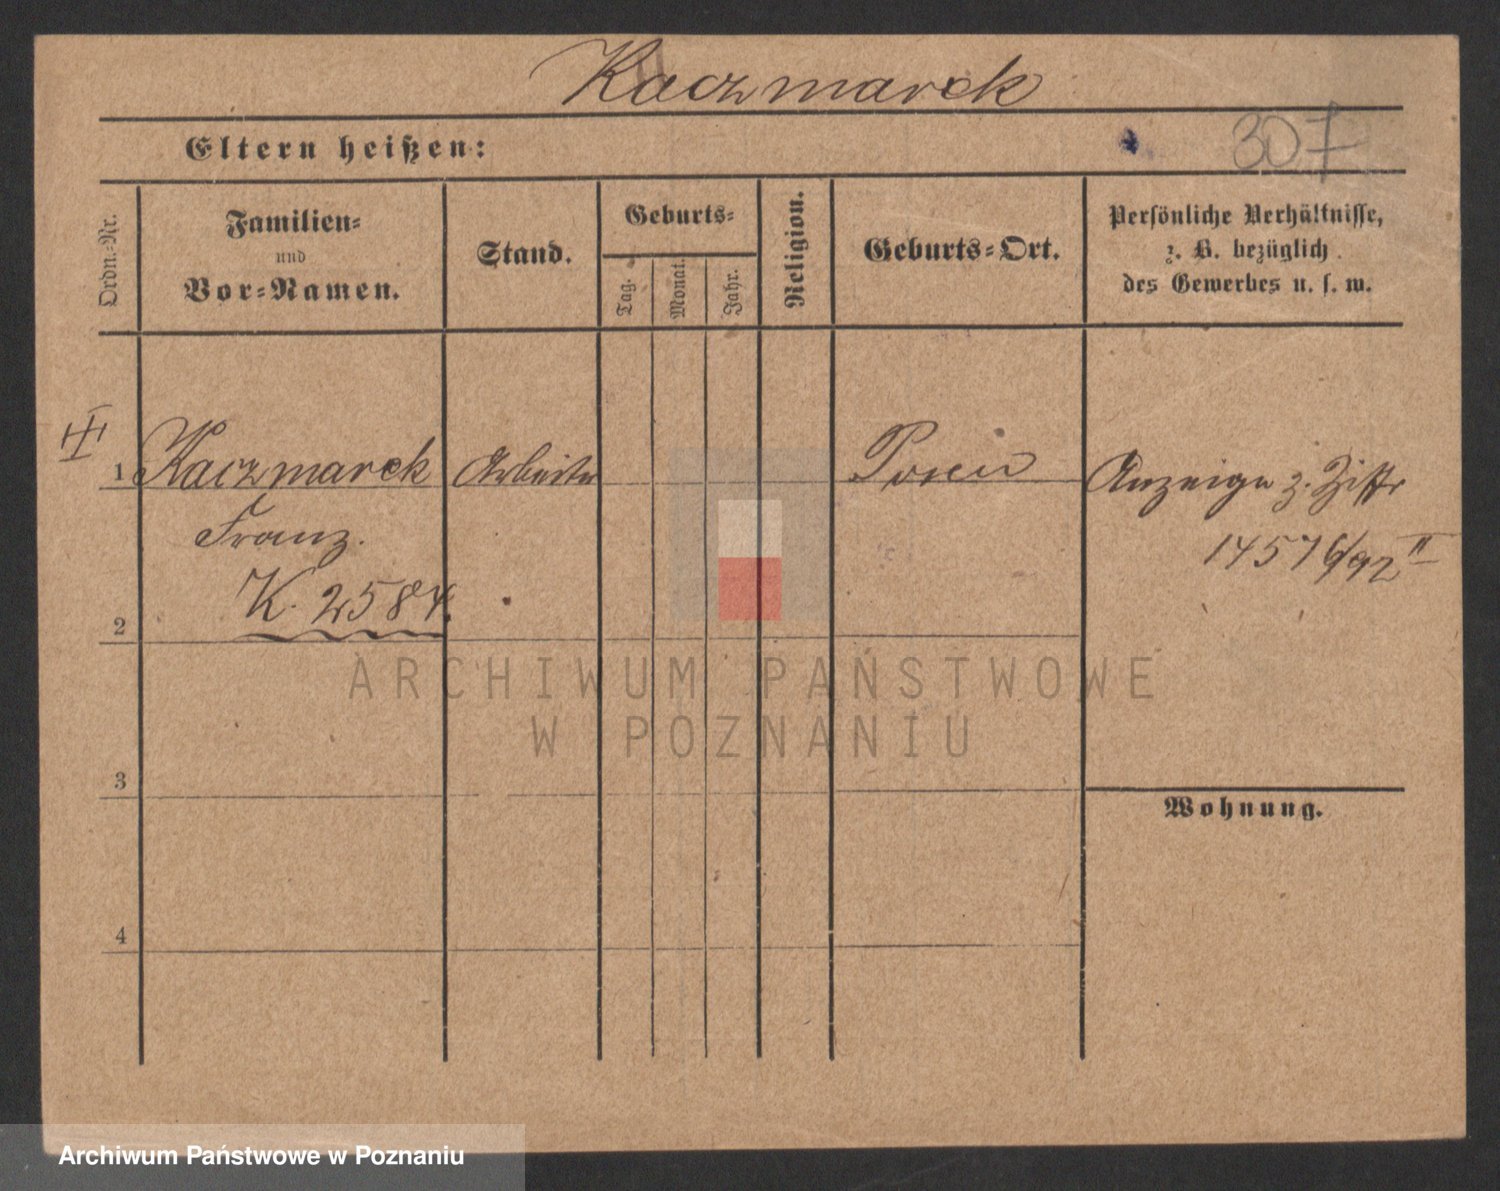 Kaczmarek
Eltern heißen:
307
Ordn.-Nr.
Familien-
und
Vor-Namen.
Stand.
Geburts-
Tag.
Monat.
Jahr.
Religion.
Geburts-Ort.
Persönliche Verhältnisse,
z. B. bezüglich
des Gewerbes u. s. w.
1 Kaczmarek Arbeiter Posen Anzeige z. Ziffr
Franz.
14576/92 II
K. 2584.
2
ARCHIWUM PAŃSTWOWE
W POZNANIU
3
Wohnung.
4
Archiwum Państwowe w Poznaniu